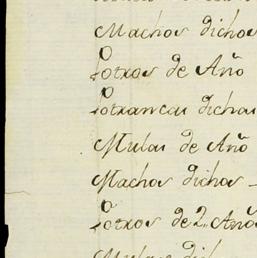 Machos dichos
Potros de Año
Potrancas dichas
Mulas de Año
Machos dichos
Potros de 2,, Años
Mulas dich